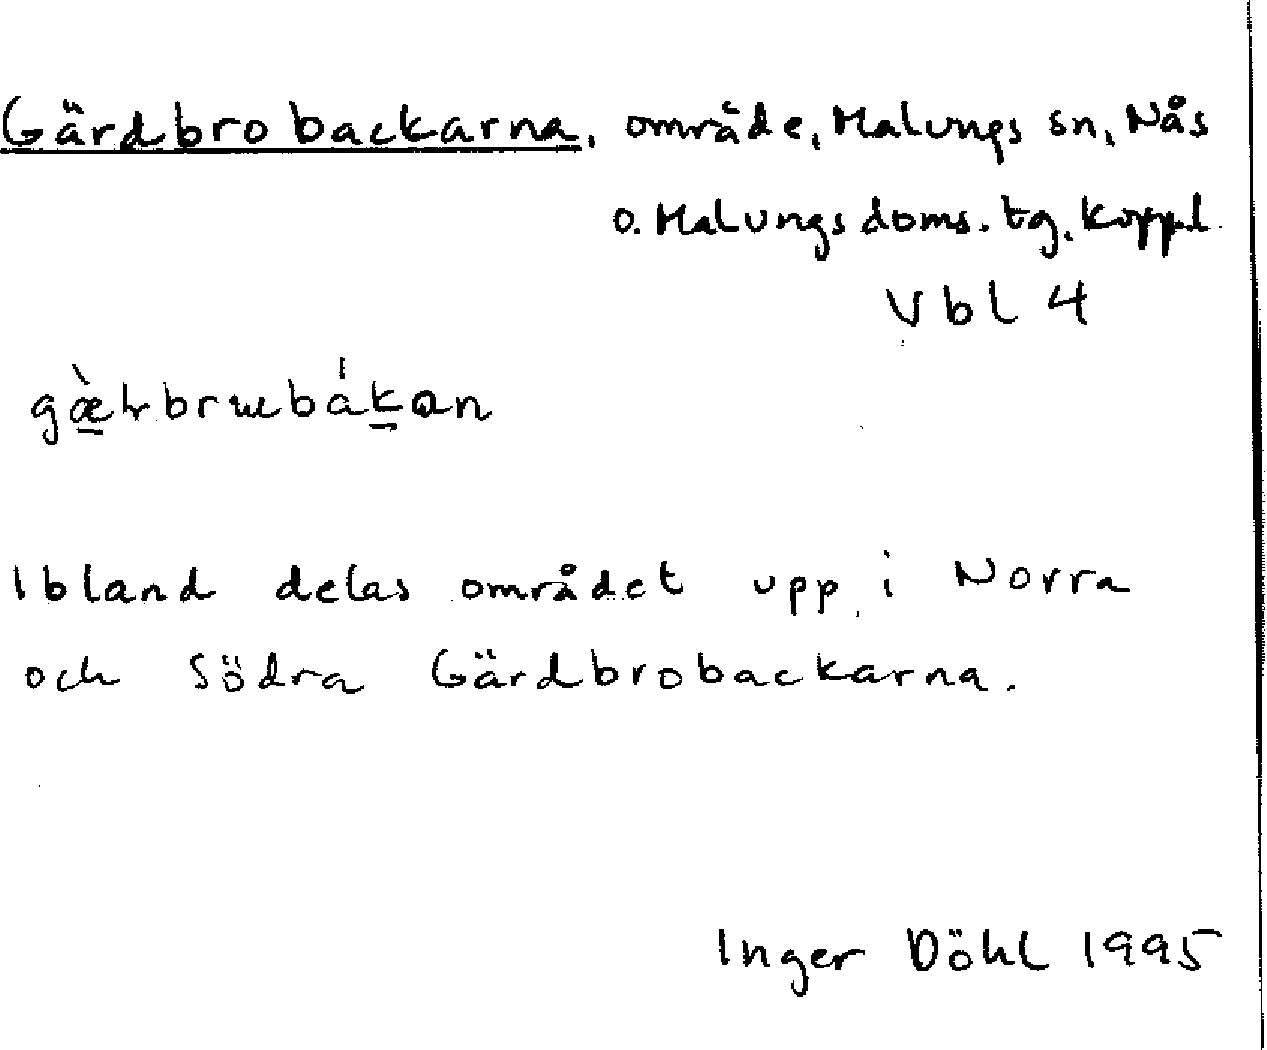 Gärdbrobackarna, område, Malungs sn, Nås
o. Malungs doms. tg, Koppl.
Vbl 4
Ibland delas området upp i Norra
och Södra Gärdbrobackarna.
Inger Döhl 1995